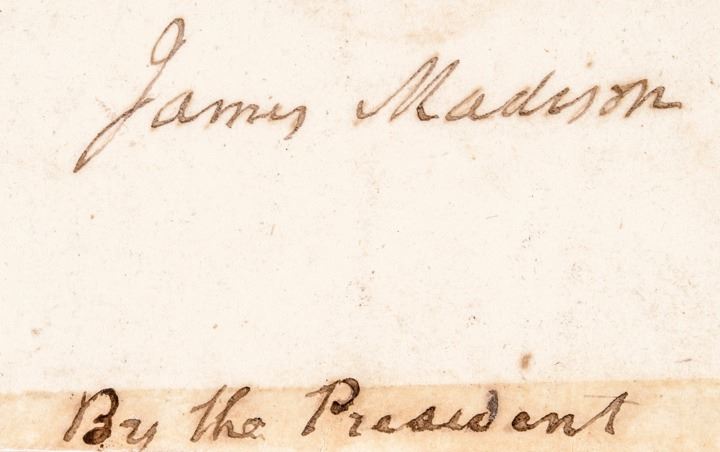 James Madison
By the President